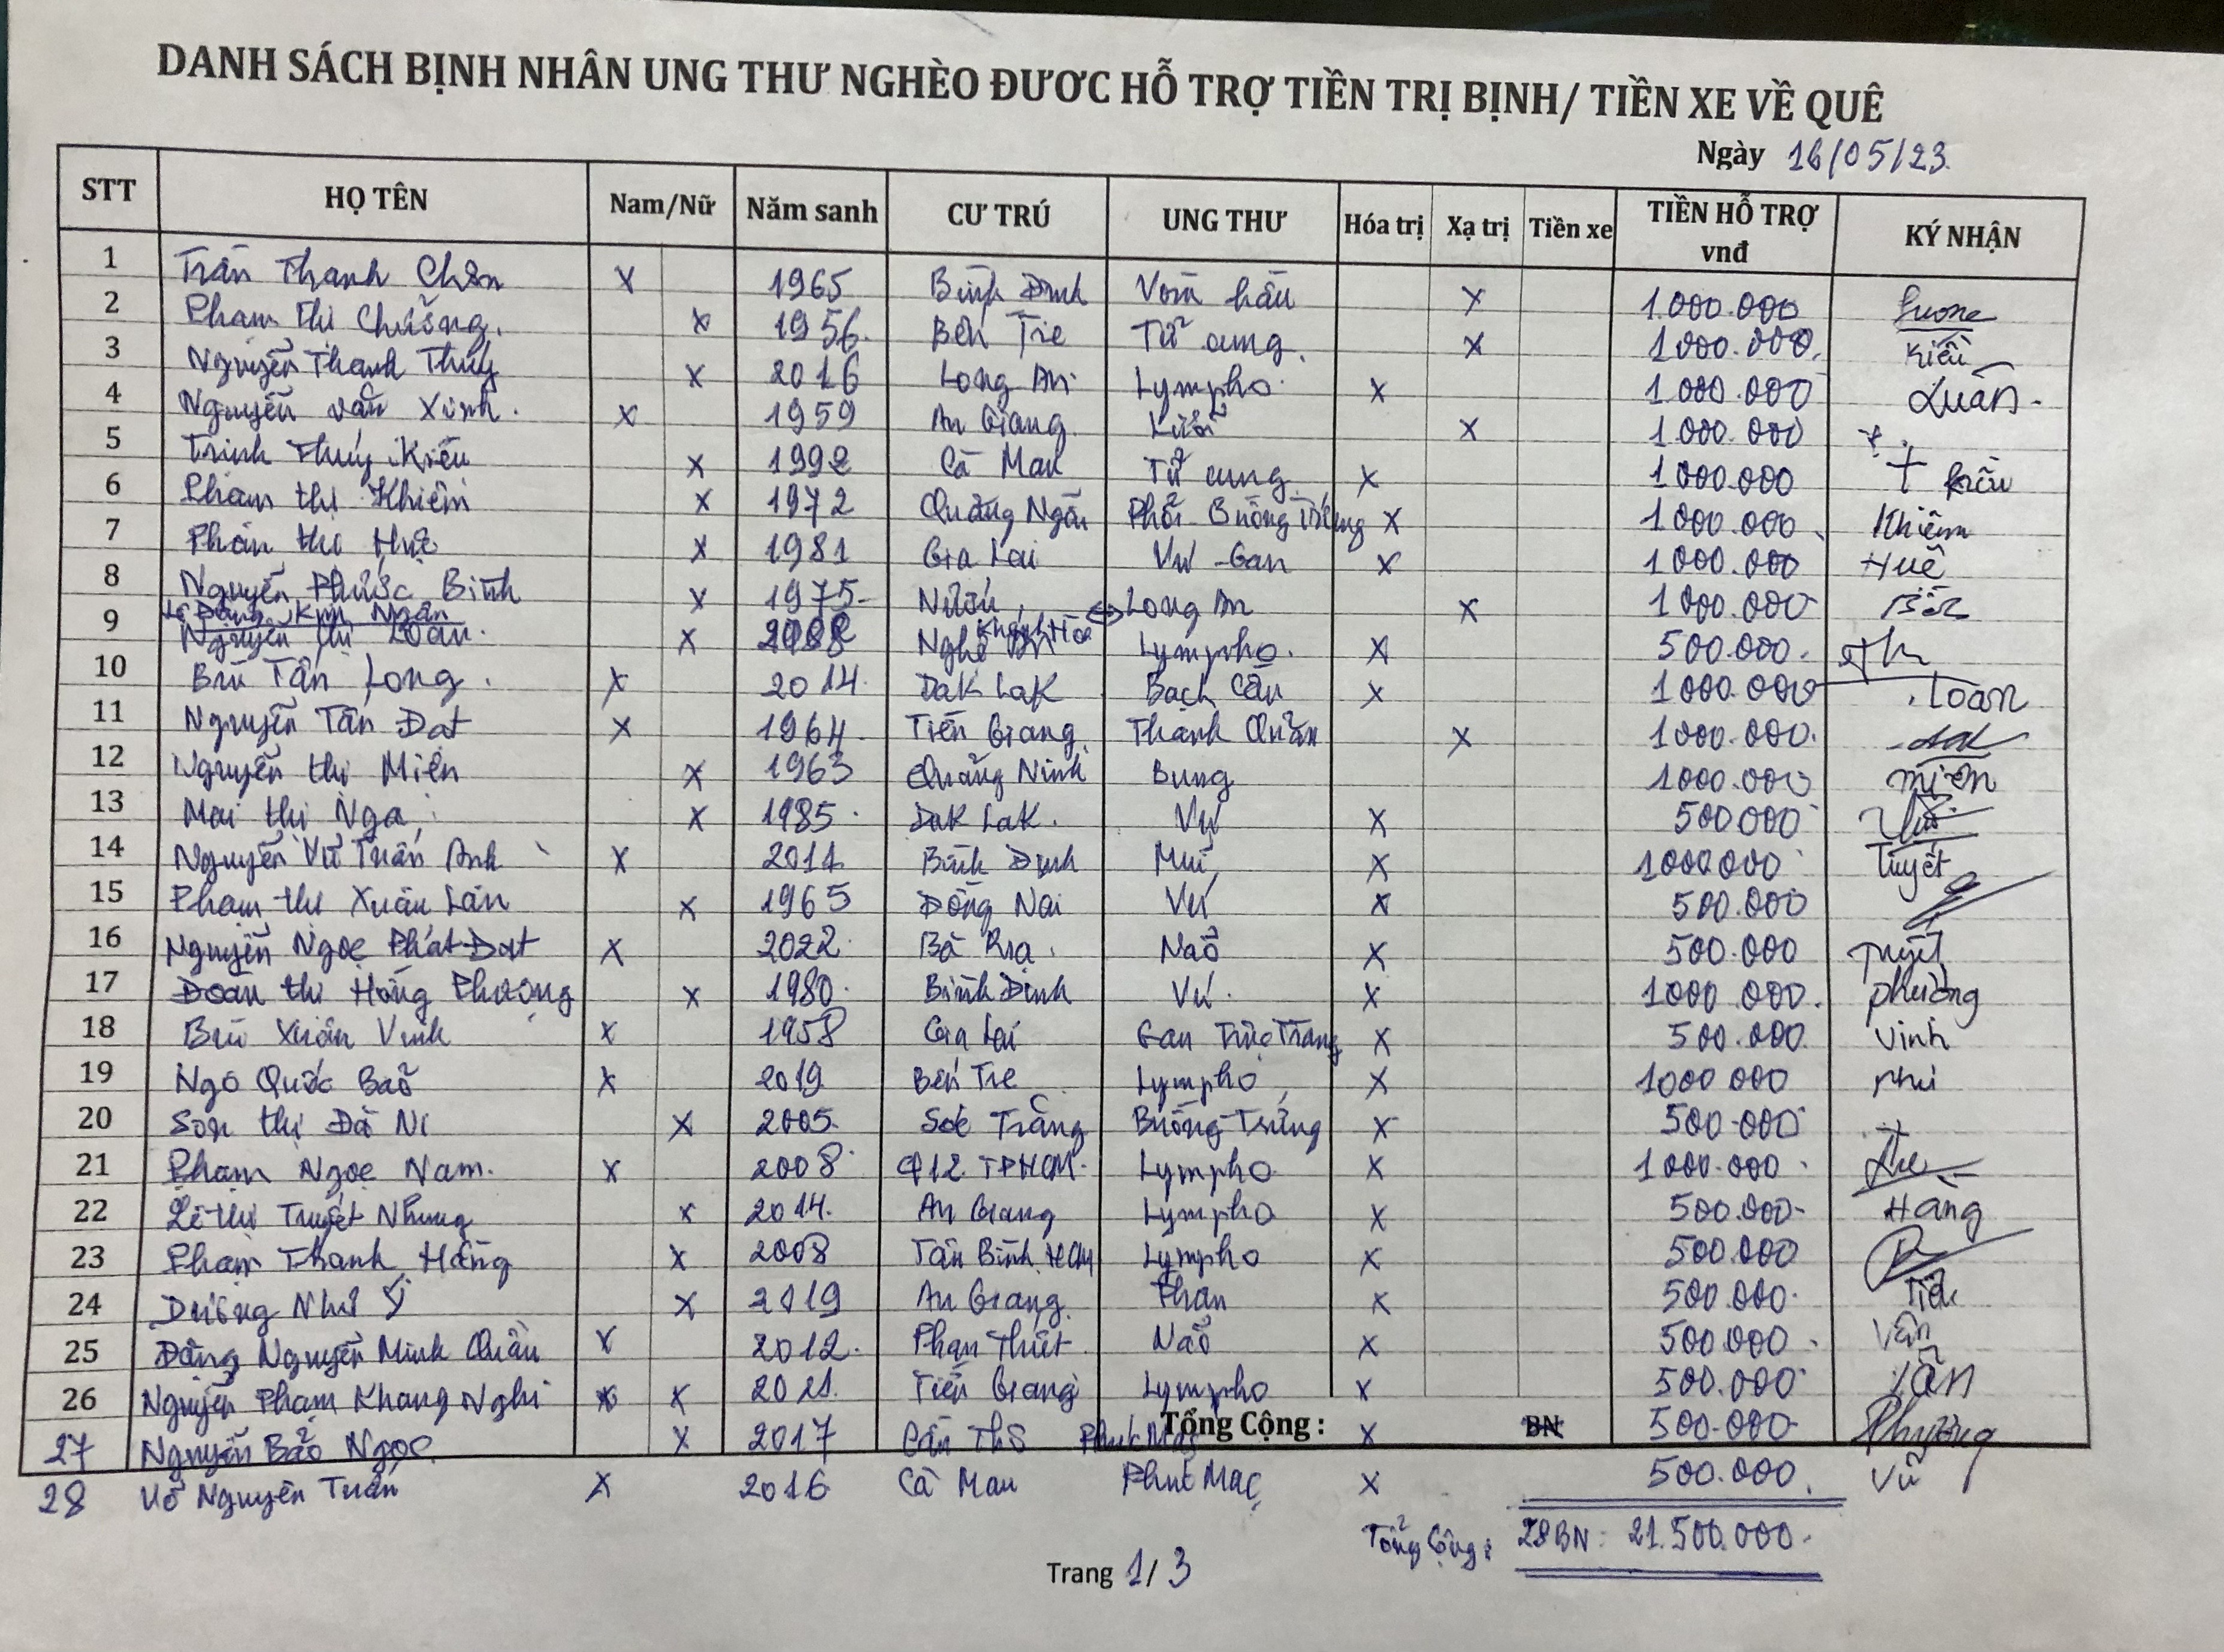 DANH SÁCH BỊNH NHÂN UNG THƯ NGHÈO ĐƯƠC HỖ TRỢ TIỀN TRỊ BỊNH/ TIỀN XE VỀ QUÊ
Ngày 16/05/23.
STT HỌ TÊN Nam/Nữ Năm sanh CƯ TRÚ UNG THƯ Hóa trị Xạ trị Tiền xe TIỀN HỖ TRỢ vnđ KÝ NHẬN
1 Trần Thanh X 1965 Bình Định Vòm hầu X 1.000.000
2 Phạm Thị Chưởng. X 1956. Bến Tre Tử cung. X 1000.000. Kiều
3 Nguyễn Thanh Thúy X 2016 Long An. Lympho. X 1.000.000 Luân.
4 Nguyễn Văn Xinh. X 1959 An Giang Lưỡi X 1.000.000 +
5 Trịnh Thúy Kiều X 1992 Cà Mau Tử cung X 1000.000 + Kiều
6 Phạm thị Khiêm X 1972 Quảng Ngãi Phổi Buồng Trứng X 1000.000. Khiêm
7 Phan thị Huệ X 1981 Gia Lai Vú - Gan X 1000.000 Huê
8 Nguyễn Phước Bình X 1975 Nướu, <-> Long An X 1000.000
Lê Đặng Kim Ngân Khánh Hòa
9 Nguyễn thị X Nghệ An Lympho. X 500.000.
10 Bùi Tấn Long. X 2014. Dak Lak Bạch Cầu X 1000.000 Loan
11 Nguyễn Tấn Đạt X 1964 Tiền Giang Thanh Quản X 1000.000.
12 Nguyễn thị Miện X 1963 Quảng Ninh Bụng 1000.000 miện
13 Mai thị Nga X 1985. Dak Lak. Vú X 500.000
14 Nguyễn Vũ Tuấn Anh X 2011 Bình Định Mũi X 1000.000 Tuyết
15 Phạm thị Xuân Lan X 1965 Đồng Nai Vú X 500.000
16 Nguyễn Ngọc Phát Đạt X 2022. Bà Rịa. Não X 500.000
17 Đoàn thị Hồng Phượng X 1980. Bình Định Vú. X 1000.000. phường
18 Bùi Xuân Vinh X 1958 Gia Lai Gan Trực Tràng X 500.000 Vinh
19 Ngô Quốc Bảo X 2019 Bến Tre Lympho X 1000 000 nhi
20 Sơn thị Đà Ni X 2005. Sóc Trăng Buồng Trứng X 500.000 +
21 Phạm Ngọc Nam. X 2008 Q12 TPHCM. Lympho X 1000.000.
22 Lê thị Tuyết Nhung X 2014. An Giang Lympho X 500.000- Hằng
23 Phạm Thanh Hằng X 2008 Tân Bình, HCM Lympho X 500.000
24 Dương Như Ý X 2019 An Giang Thận X 500.000.
25 Đặng Nguyễn Minh Quân X 2012. Phan Thiết Não X 500.000. Vân
26 Nguyễn Phạm Khang Nghi X 2021. Tiền Giang Lympho X 500.000
Tổng Cộng : BN
27 Nguyễn Bảo Ngọc X 2017 Cần Thơ Phúc Mạc X 500.000 Phượng
28 Võ Nguyên Tuấn X 2016 Cà Mau Phúc Mạc X 500.000. Vũ
Tổng Cộng: 28BN: 21.500.000.
Trang 1/3